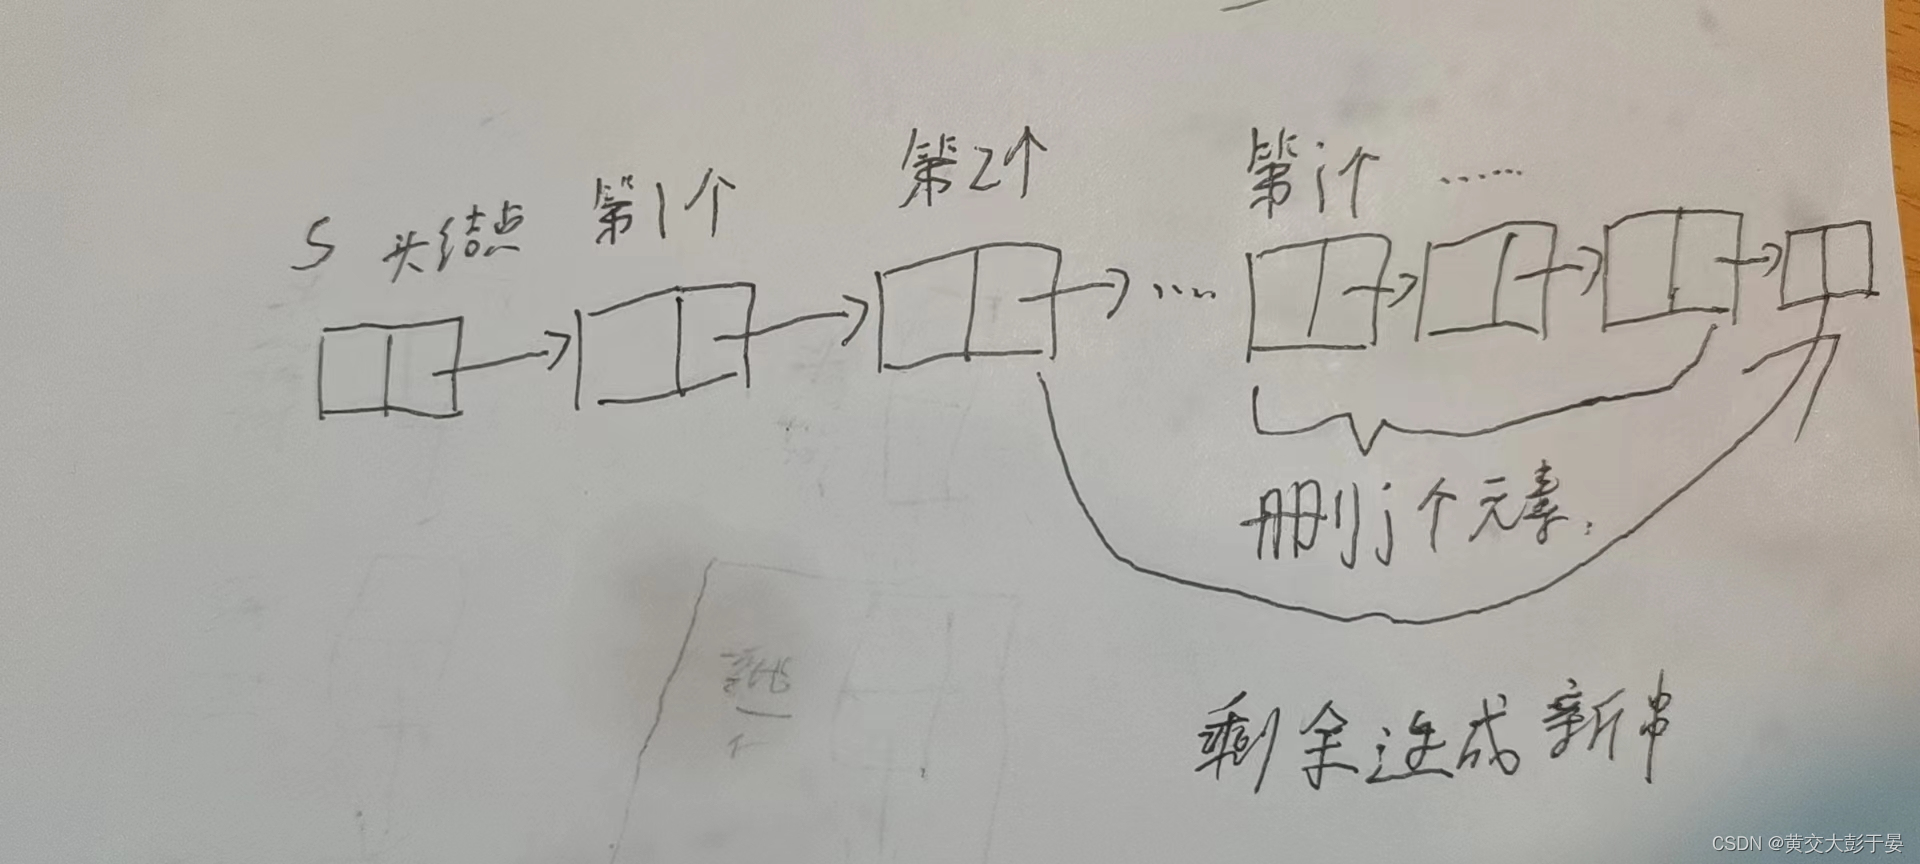 S 头结点 第1个 第2个 第i个 ……
....
删j个元素.
剩余连成新串
CSDN @黄交大彭于晏